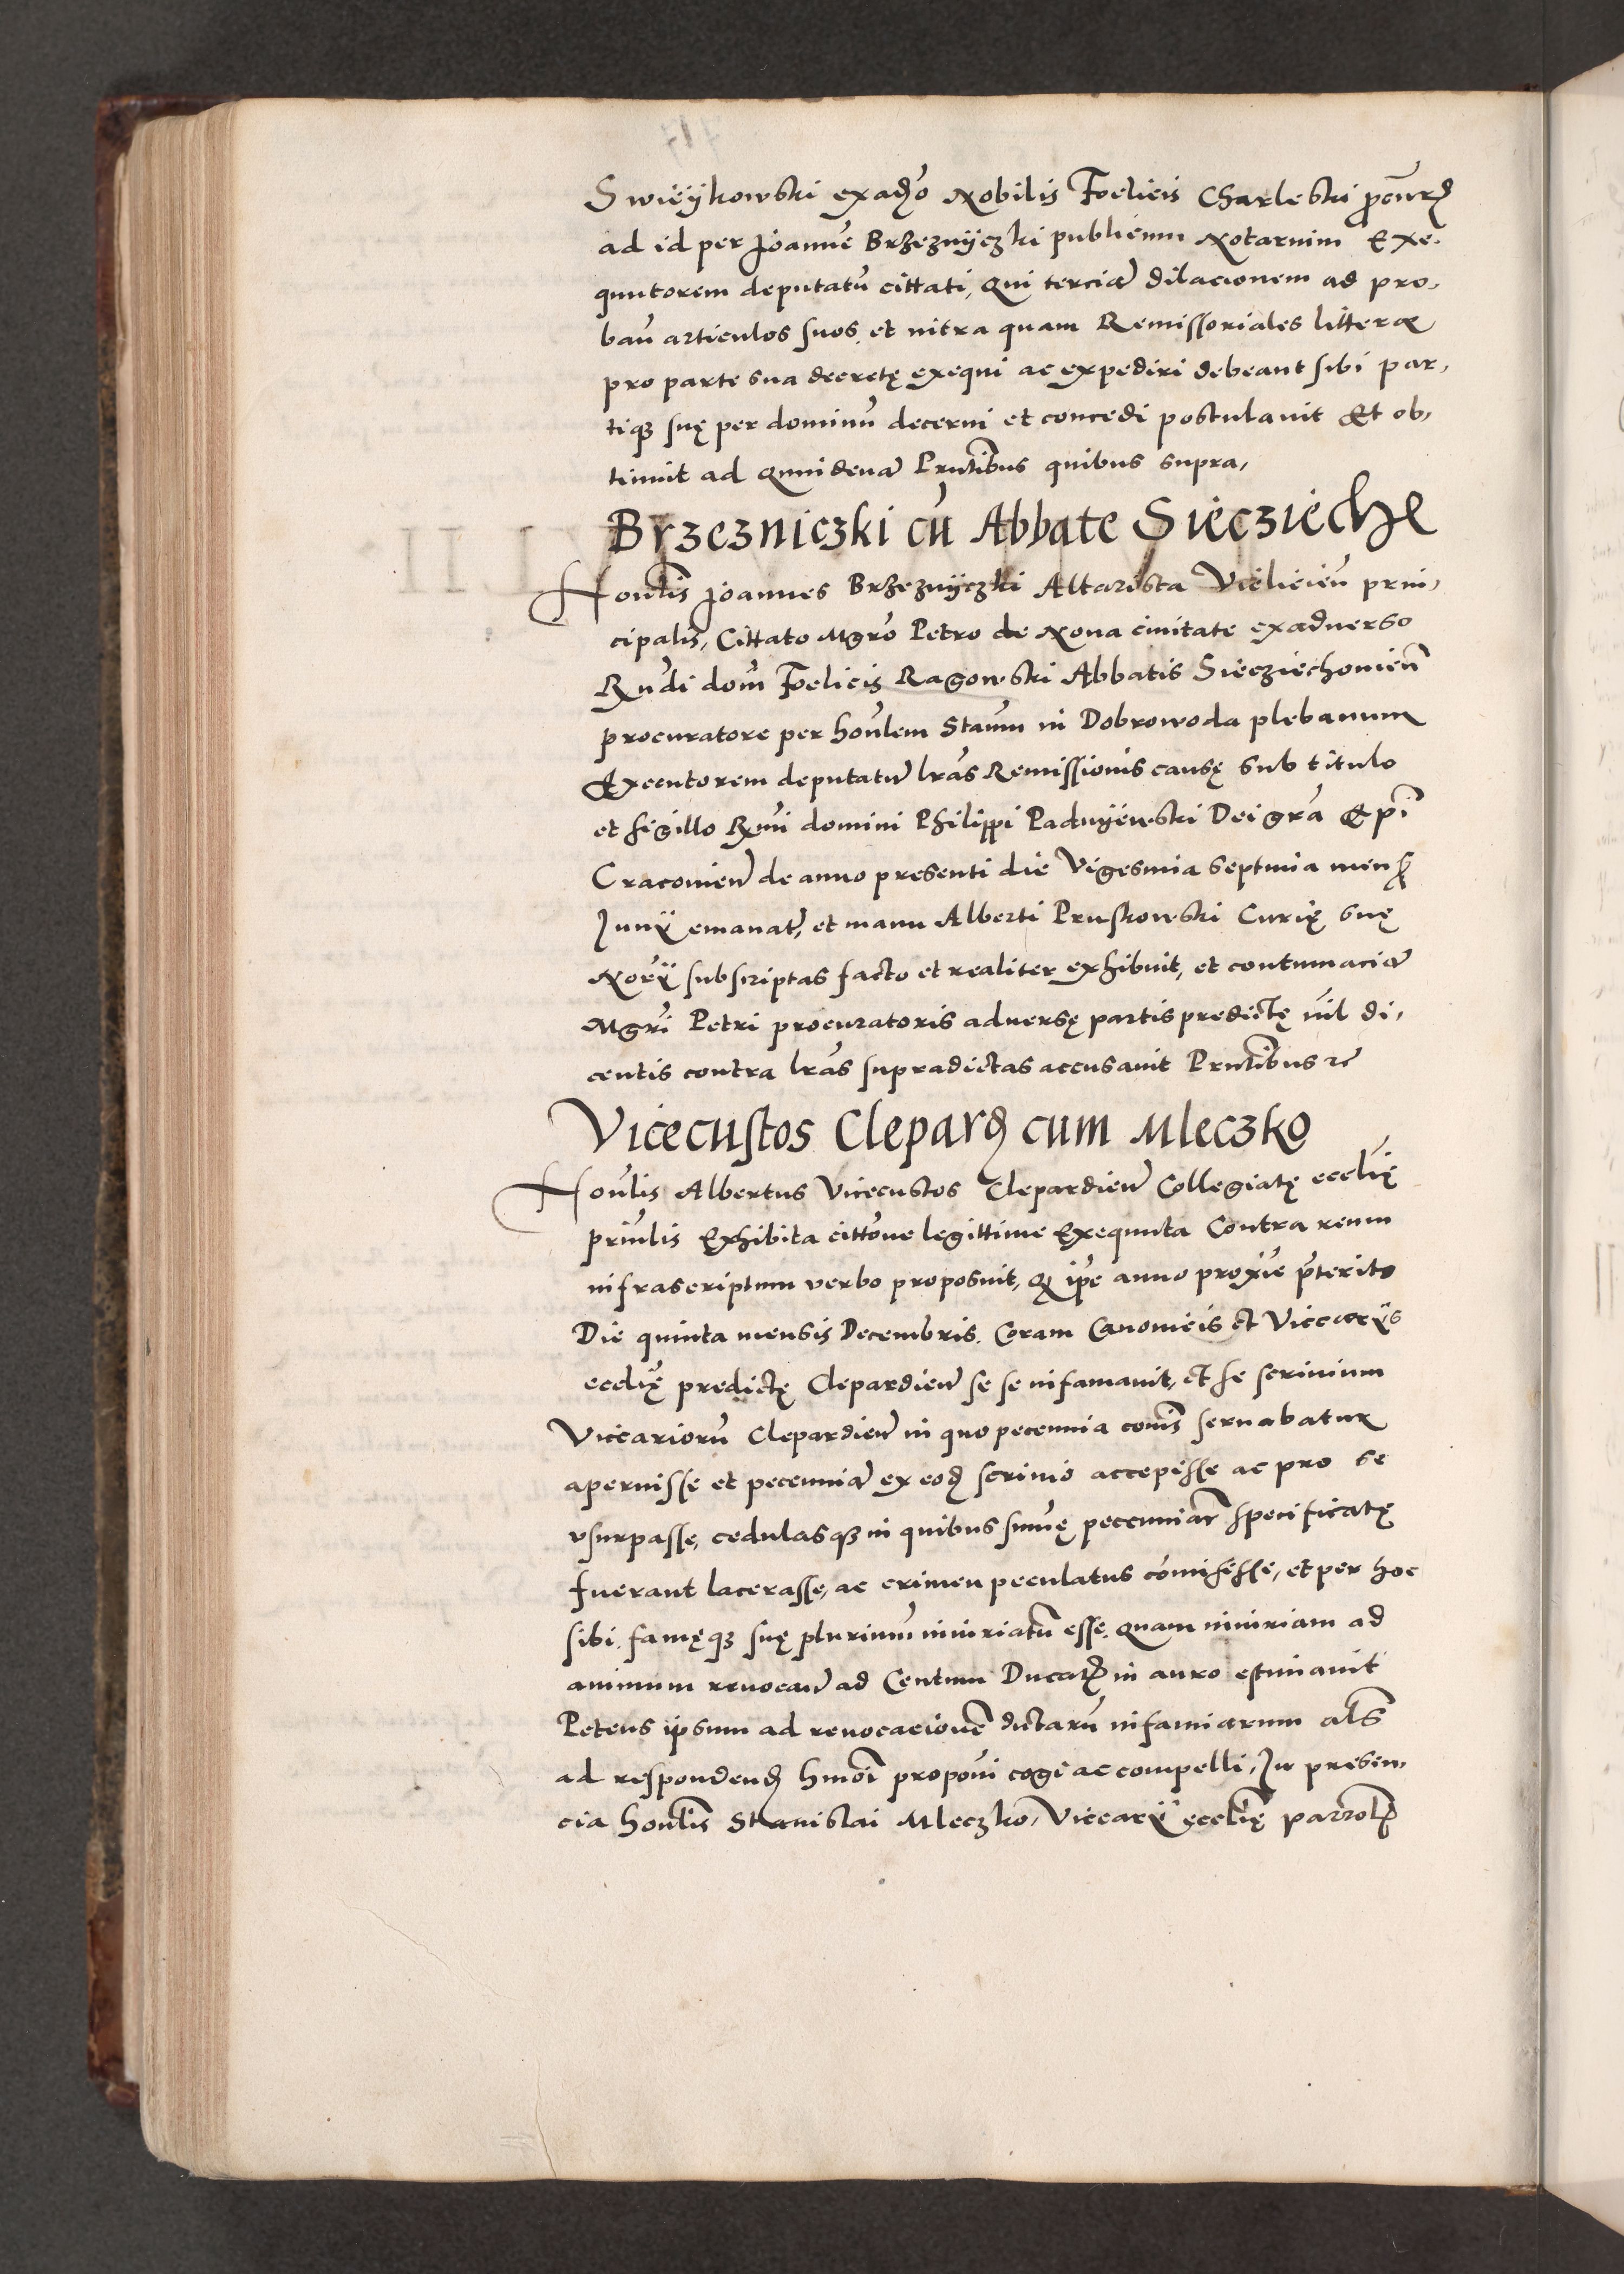 Swieÿkowski exadṽo Nobilis Foelicis Charleski ꝓcũrꝭ
ad id per Joannẽ Brzeznÿczki publicum Notarium Exe-
quutorem deputatũ cittati, Qui terciã dilacionem ad pro,
bañ articulos suos, et uitra quam Remissoriales litteræ
pro parte sua decretę exequi ac expediri debeant sibi par,
tiqꝫ suę per dominũ decerni et concedi postulauit Et ob,
tinuit ad quindenã Pñtibus quibus supra,
Brzezniczki cũ Abbate Siecziech
Honlĩs Joannes Brzeznÿczki Altarista Vieliciẽn prin,
cipalis, Cittato Mgrõ Petro de Noua ciuitate exaduerso
Rñdi dom̃ Foelicis Ragowski Abbatis Siecziechouieñ
procuratore per honl̃em Stam̃ in Dobrowoda plebanum
Executorem deputatũ lrãs Remissionis causę sub titulo
et sigillo Rm̃i domini Philippi Padnÿewski Dei gr̃a Epĩ
Cracouieñ de anno presenti die Vigesima septima menꝭ
Junÿ emanať, et manu Alberti Pruskowski Curię suę
Norÿ subscriptas facto et realiter exhibuit, et contumaciã
Mgrĩ Petri procuratoris aduersę partis predictę nil di,
centis contra lrãs supradictas accusauit Pñtibus ꝛc
Vicecustos Clepardꝭ cum Mleczko
Honl̃is Albertus Vicecustos Clepardieñ Collegiatę eccl̃ię
prin̄lis Exhibita cittõne legittime Exequuta Contra reum
infrascriptum verbo proposuit, Qꝫ ip̃e anno proxĩe p̃terito
Die quinta mensis Decembris. Coram Canonicis et Viccarÿs
eccl̃ię predictę Clepardieñ se se infamauit, et se scrinium
Viccariorũ Clepardieñ in quo peccunia com̃is seruabatur
aperuisse et peccuniã ex eodꝭ scrinio accepisse ac pro se
vsurpasse, cedulasqꝫ in quibus sum̃ę peccuniarũ specificatę
fuerant lacerasse, ac crimen peculatus com̃isisse, et per hoc
sibi famęqꝫ suę plurimũ iniuriatũ esse. Quam iniuriam ad
animum reuocañ ad Centum Ducatꝭ in auro estimauit
Petens ipsum ad reuocacionẽ dictarũ infamiarum als̃
ad respondendꝭ hmõi proponi cogi ac compelli, In presen,
cia honl̃is Stanislai Mleczko, Viccarÿ eccl̃ię parrolꝭ